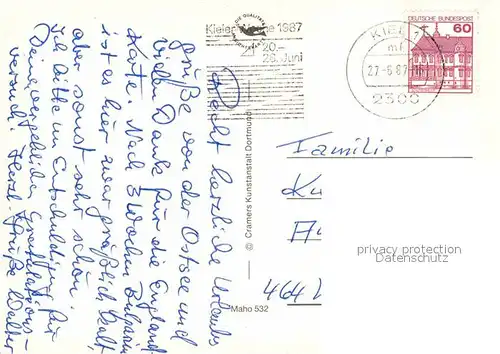 Recht herzliche Urlaubs
grüße von der Ostsee und
vielen Dank für die England
Karte. Nach 3 Wochen
ist es hier zwar gräßlich kalt,
aber sonst sehr schön.
Ich bitte um Entschuldigung für
Gratulations-
versuch. Herzl. Grüße Walter
Kieler Woche 1987
20.–
28. Juni
KIEL 1
mf
27-6.87
2300
DEUTSCHE BUNDESPOST
60
© Cramers Kunstanstalt Dortmund
Maho 532
Familie
464
privacy protection
Datenschutz